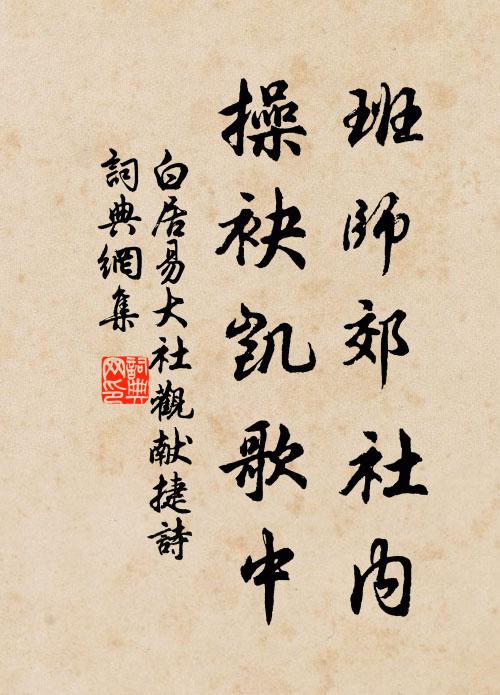 班師郊社内
操袂凱歌中
白居易大社觀献捷詩
詞典網集
詞典
网印